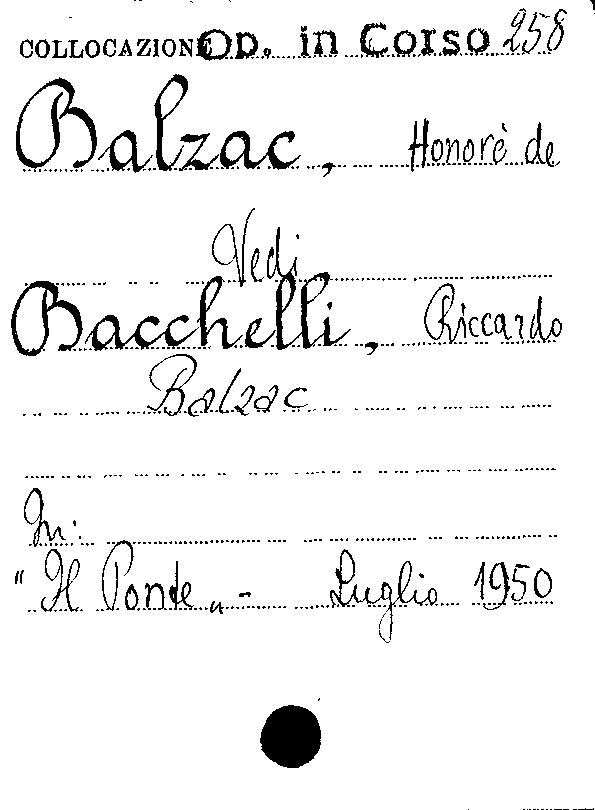 COLLOCAZIONE Op. in Corso 258
Balzac, Honorè de
Vedi
Bacchelli, Riccardo
Balzac
In:
"Il Ponte„ - Luglio 1950